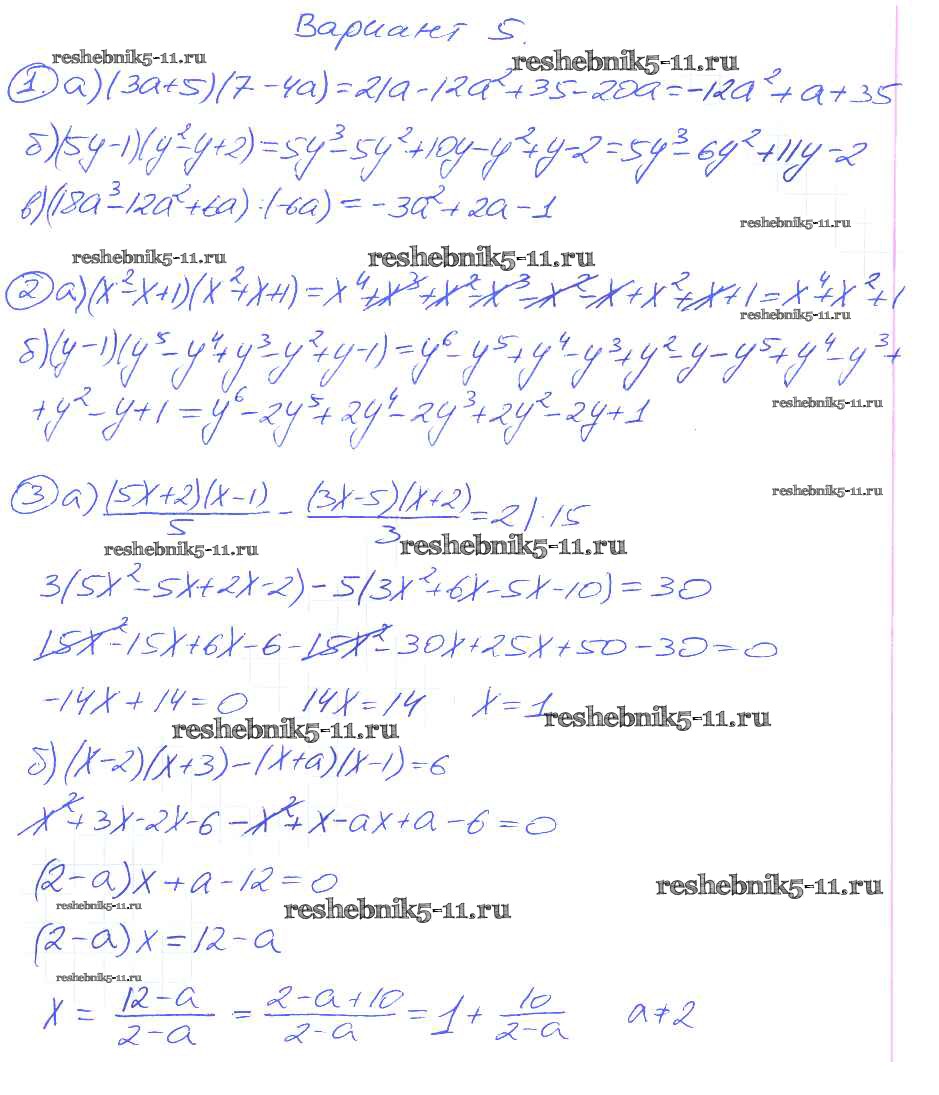 Вариант 5.
reshebnik5-11.ru reshebnik5-11.ru
1. а) (3a+5)(7-4a)=21a-12a²+35-20a=-12a²+a+35
б) (5y-1)(y²-y+2)=5y³-5y²+10y-y²+y-2=5y³-6y²+11y-2
в) (18a³-12a²+6a):(-6a)=-3a²+2a-1
reshebnik5-11.ru
reshebnik5-11.ru reshebnik5-11.ru
2 а) (x²-x+1)(x²+x+1)=x⁴+x³+x²-x³-x²-x+x²+x+1=x⁴+x²+1
reshebnik5-11.ru
б) (y-1)(y⁵-y⁴+y³-y²+y-1)=y⁶-y⁵+y⁴-y³+y²-y-y⁵+y⁴-y³+
+y²-y+1=y⁶-2y⁵+2y⁴-2y³+2y²-2y+1
reshebnik5-11.ru
3 а) (5x+2)(x-1)/5 - (3x-5)(x+2)/3 =2 |·15
reshebnik5-11.ru
reshebnik5-11.ru reshebnik5-11.ru
3(5x²-5x+2x-2)-5(3x²+6x-5x-10)=30
15x²-15x+6x-6-15x²-30x+25x+50-30=0
-14x+14=0 14x=14 x=1
reshebnik5-11.ru reshebnik5-11.ru
б) (x-2)(x+3)-(x+a)(x-1)=6
x²+3x-2x-6-x²+x-ax+a-6=0
(2-a)x+a-12=0
reshebnik5-11.ru
reshebnik5-11.ru reshebnik5-11.ru
(2-a)x=12-a
reshebnik5-11.ru
x = 12-a/2-a = 2-a+10/2-a = 1+ 10/2-a a≠2